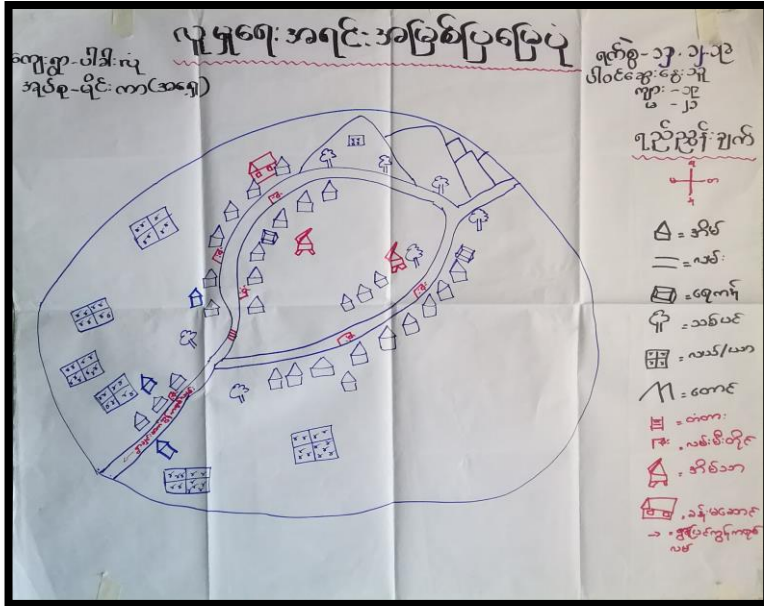 လူမှုရေးအရင်းအမြစ်ပြမြေပုံ
ကျေးရွာ-ပါဒါးလုံ
အုပ်စု-မိုင်းကာ(အရှေ့)
ရက်စွဲ-
ပါဝင်ဆွေးနွေးသူ
ကျား -၁၉
မ -၂၁
ရည်ညွှန်းချက်
= အိမ်
= လမ်း
= ရေကန်
= သစ်ပင်
= လယ်/ယာ
= တောင်
= တံတား
= လမ်းမီးတိုင်
= အိမ်သာ
= ခန်းမဆောင်
→ =
လမ်း